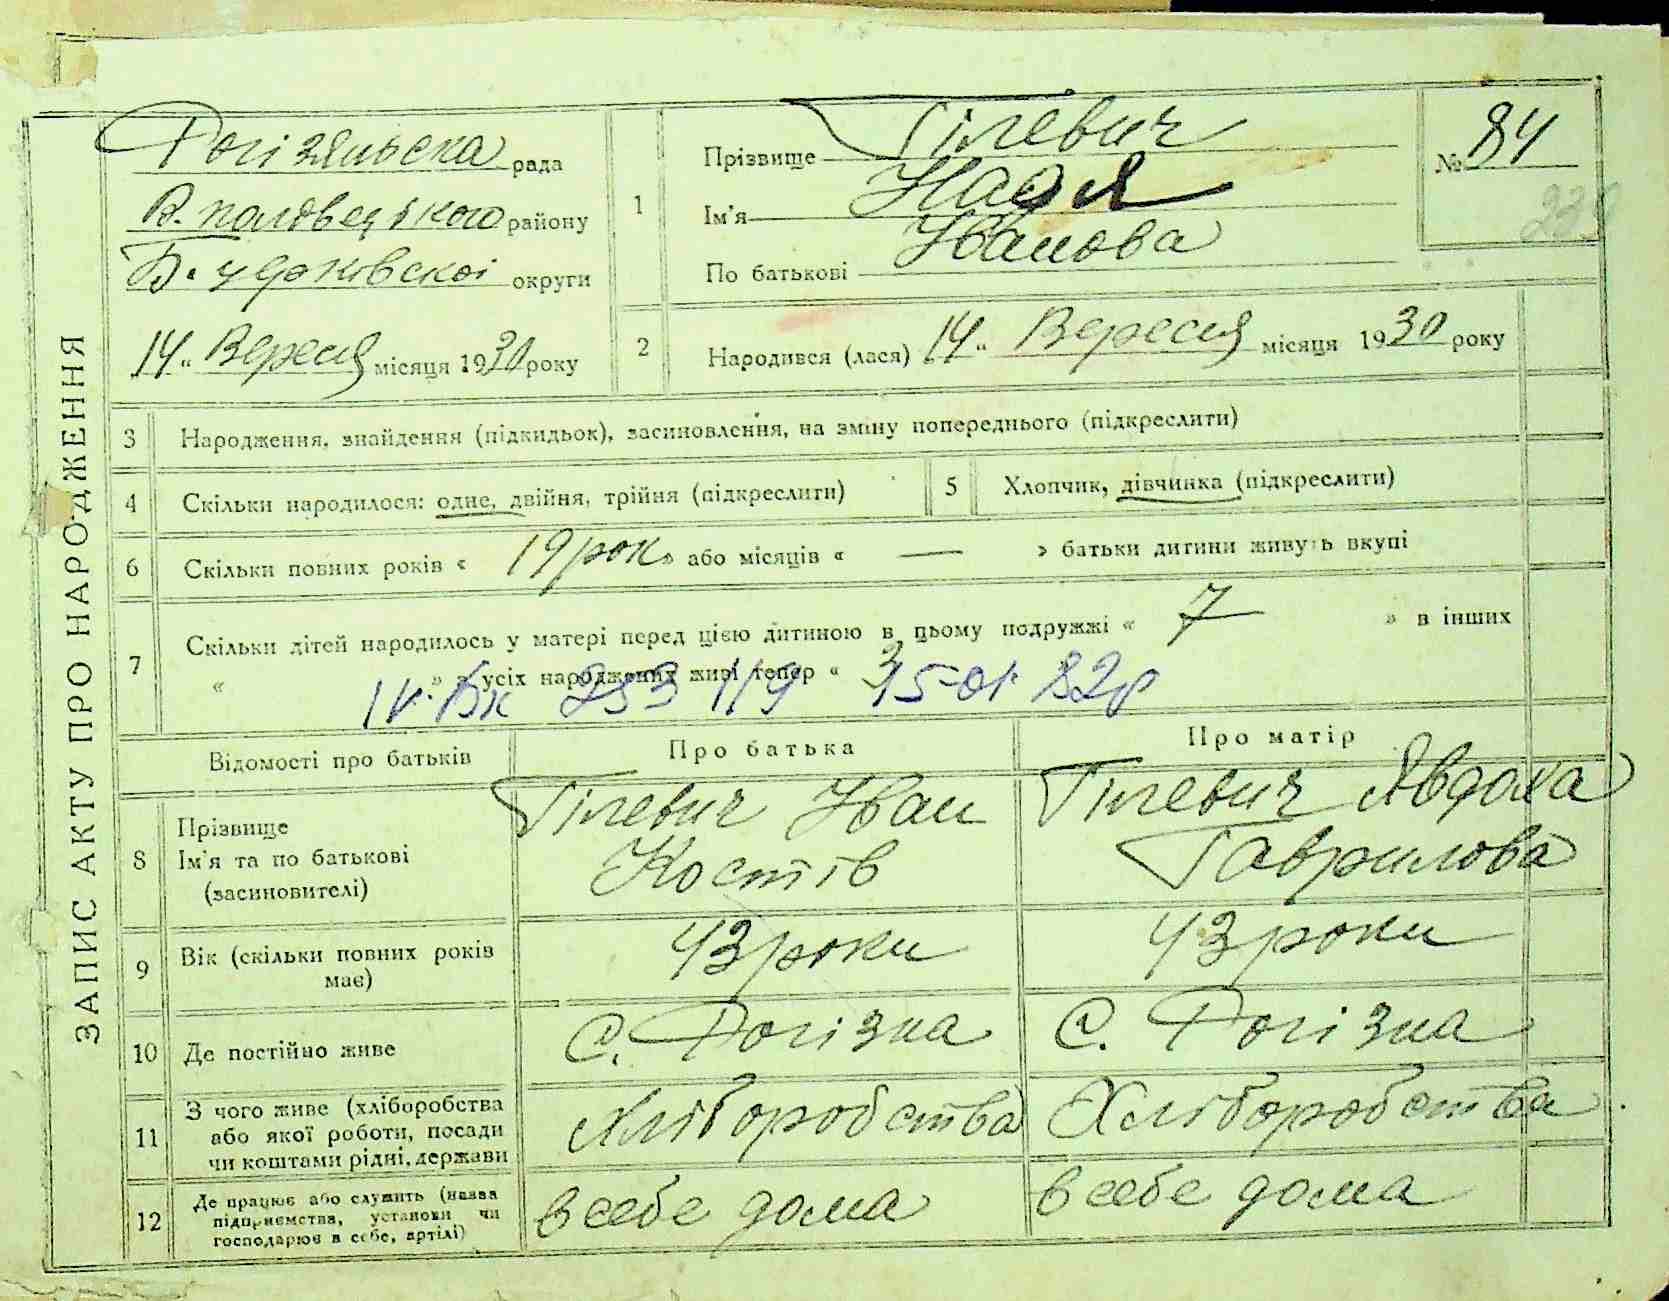 ЗАПИС АКТУ ПРО НАРОДЖЕННЯ
Рогізяньска рада
В. половецького району
Б. церковскоі округи
„14“ Вересня місяця 1930 року
1
Прізвище Гілевич
Ім'я Надя
По батькові Іванова
№ 84
2
Народився (лася) „14“ Вересня місяця 1930 року
3 Народження, знайдення (підкидьок), засиновлення, на зміну попереднього (підкреслити)
4 Скільки народилося: одне, двійня, трійня (підкреслити)
5 Хлопчик, дівчинка (підкреслити)
6 Скільки повних років « 19 рок » або місяців « — » батьки дитини живуть вкупі
7 Скільки дітей народилось у матері перед цією дитиною в цьому подружжі « 7 » в інших
« » з усіх народжених живі тепер « 3
ІV-БК 253119 15-01 82р
Відомості про батьків
Про батька
Про матір
8 Прізвище
Ім'я та по батькові
(засиновителі)
Гілевич Іван
Костів
Гілевич Явдоха
Гаврилова
9 Вік (скільки повних років
має)
43 роки
43 роки
10 Де постійно живе
С. Рогізна
С. Рогізна
11 З чого живе (хліборобства
або якої роботи, посади
чи коштами рідні, держави
Хліборобства
Хліборобства
12 Де працює або служить (назва
підприємства, установи чи
господарює в себе, артілі)
в себе дома
в себе дома